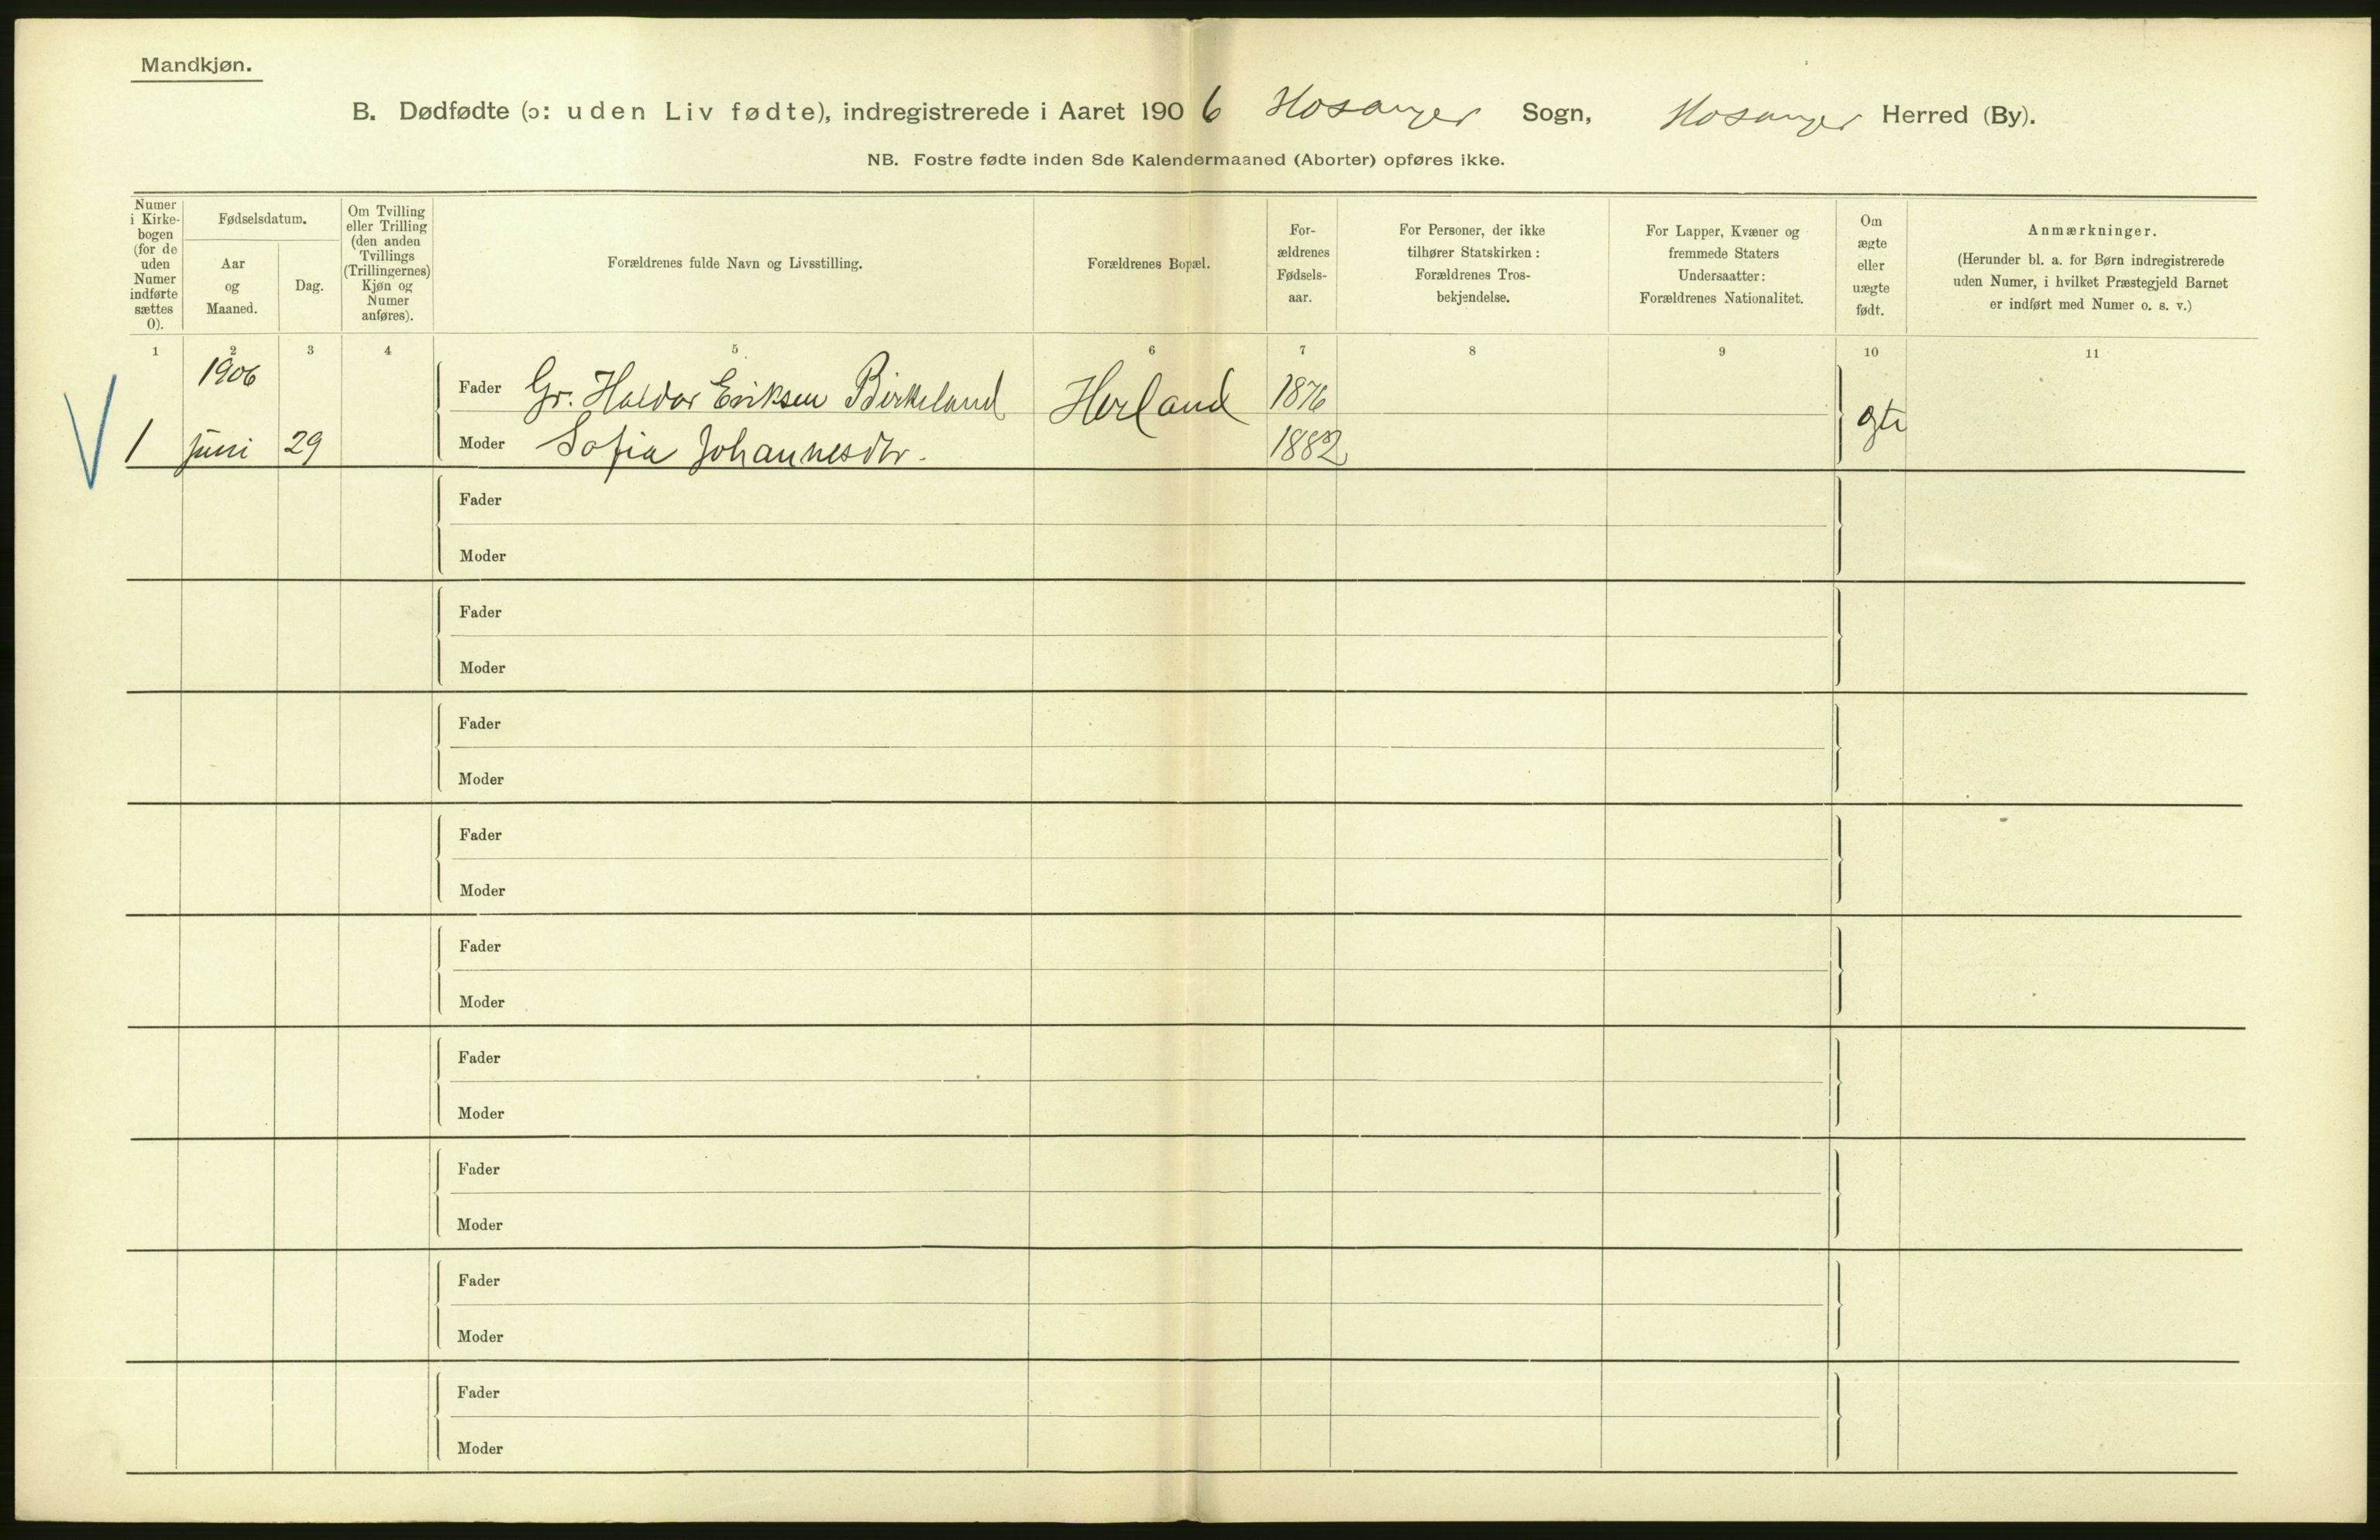 Mandkjøn.
B. Dødfødte (ɔ: uden Liv fødte), indregistrerede i Aaret 1906 Hosanger Sogn, Hosanger Herred (By).
NB. Fostre fødte inden 8de Kalendermaaned (Aborter) opføres ikke.
Numer
i Kirke-
bogen
(for de
uden
Numer
indførte
sættes
0).
Fødselsdatum.
Aar
og
Maaned.
Dag.
Om Tvilling
eller Trilling
(den anden
Tvillings
(Trillingernes)
Kjøn og
Numer
anføres).
Forældrenes fulde Navn og Livsstilling.
Forældrenes Bopæl.
For-
ældrenes
Fødsels-
aar.
For Personer, der ikke
tilhører Statskirken:
Forældrenes Tros-
bekjendelse.
For Lapper, Kvæner og
fremmede Staters
Undersaatter:
Forældrenes Nationalitet.
Om
ægte
eller
uægte
født.
Anmærkninger.
(Herunder bl. a. for Børn indregistrerede
uden Numer, i hvilket Præstegjeld Barnet
er indført med Numer o. s. v.)
1 2 3 4 5 6 7 8 9 10 11
1906
Fader Gr. Haldor Eriksen Birkeland Herland 1876
1 Juni 29 Moder Sofia Johannesdtr. 1882 ægte
Fader
Moder
Fader
Moder
Fader
Moder
Fader
Moder
Fader
Moder
Fader
Moder
Fader
Moder
Fader
Moder
Fader
Moder